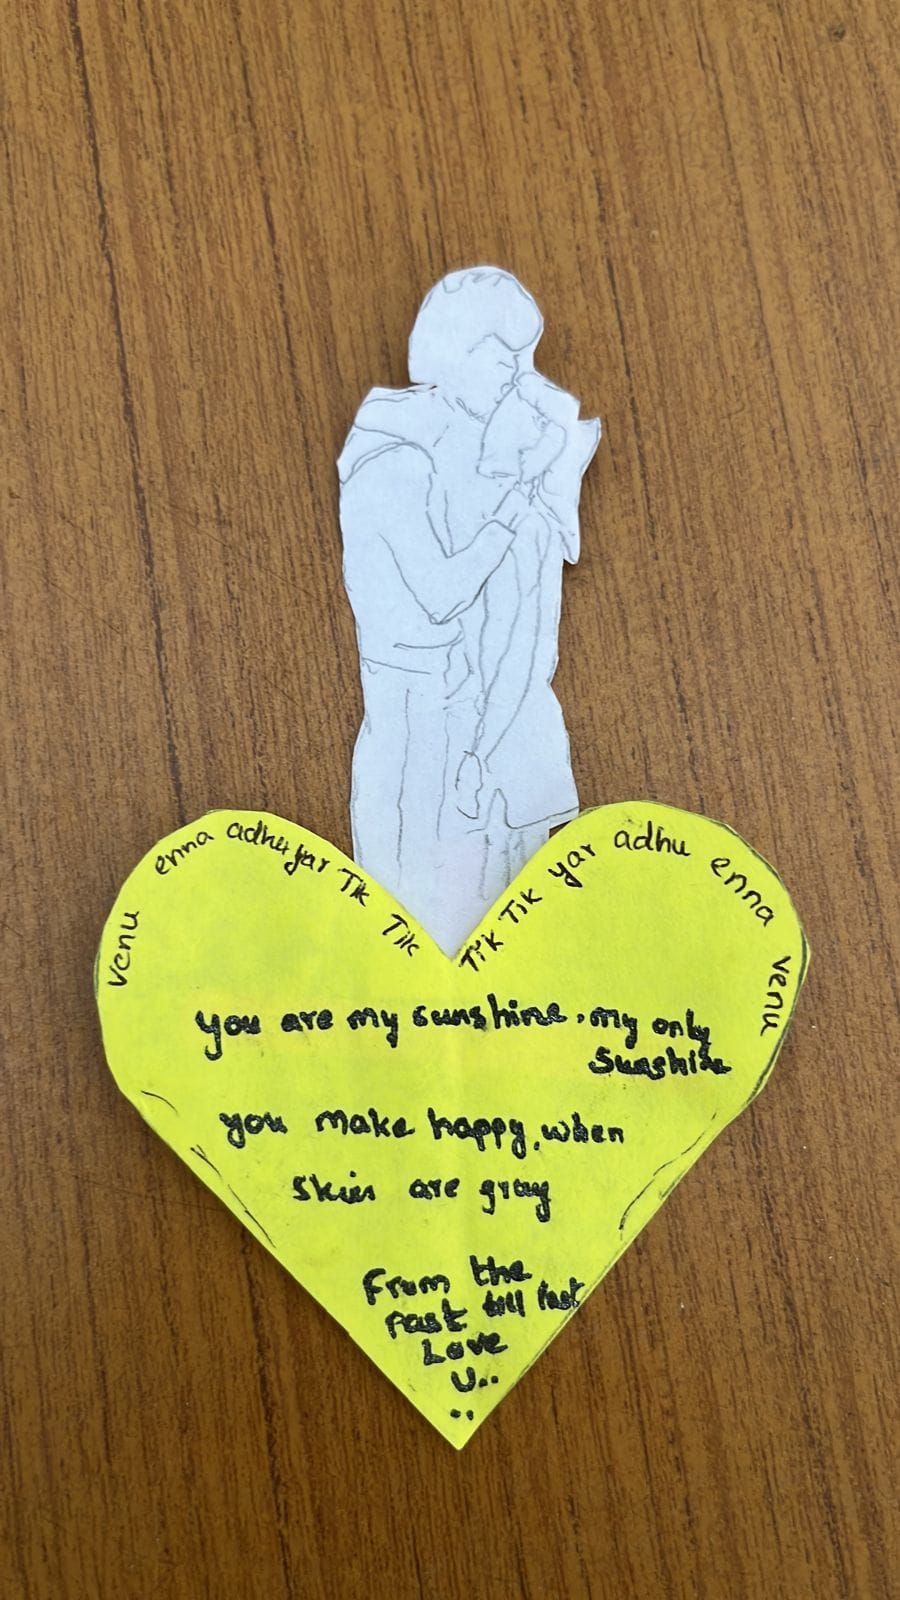 venu enna adhu yar Tik Tik
Tik Tik yar adhu enna venu
you are my sunshine, my only
Sunshine
you make happy, when
Skies are gray
From the
Past till last
Love
U..